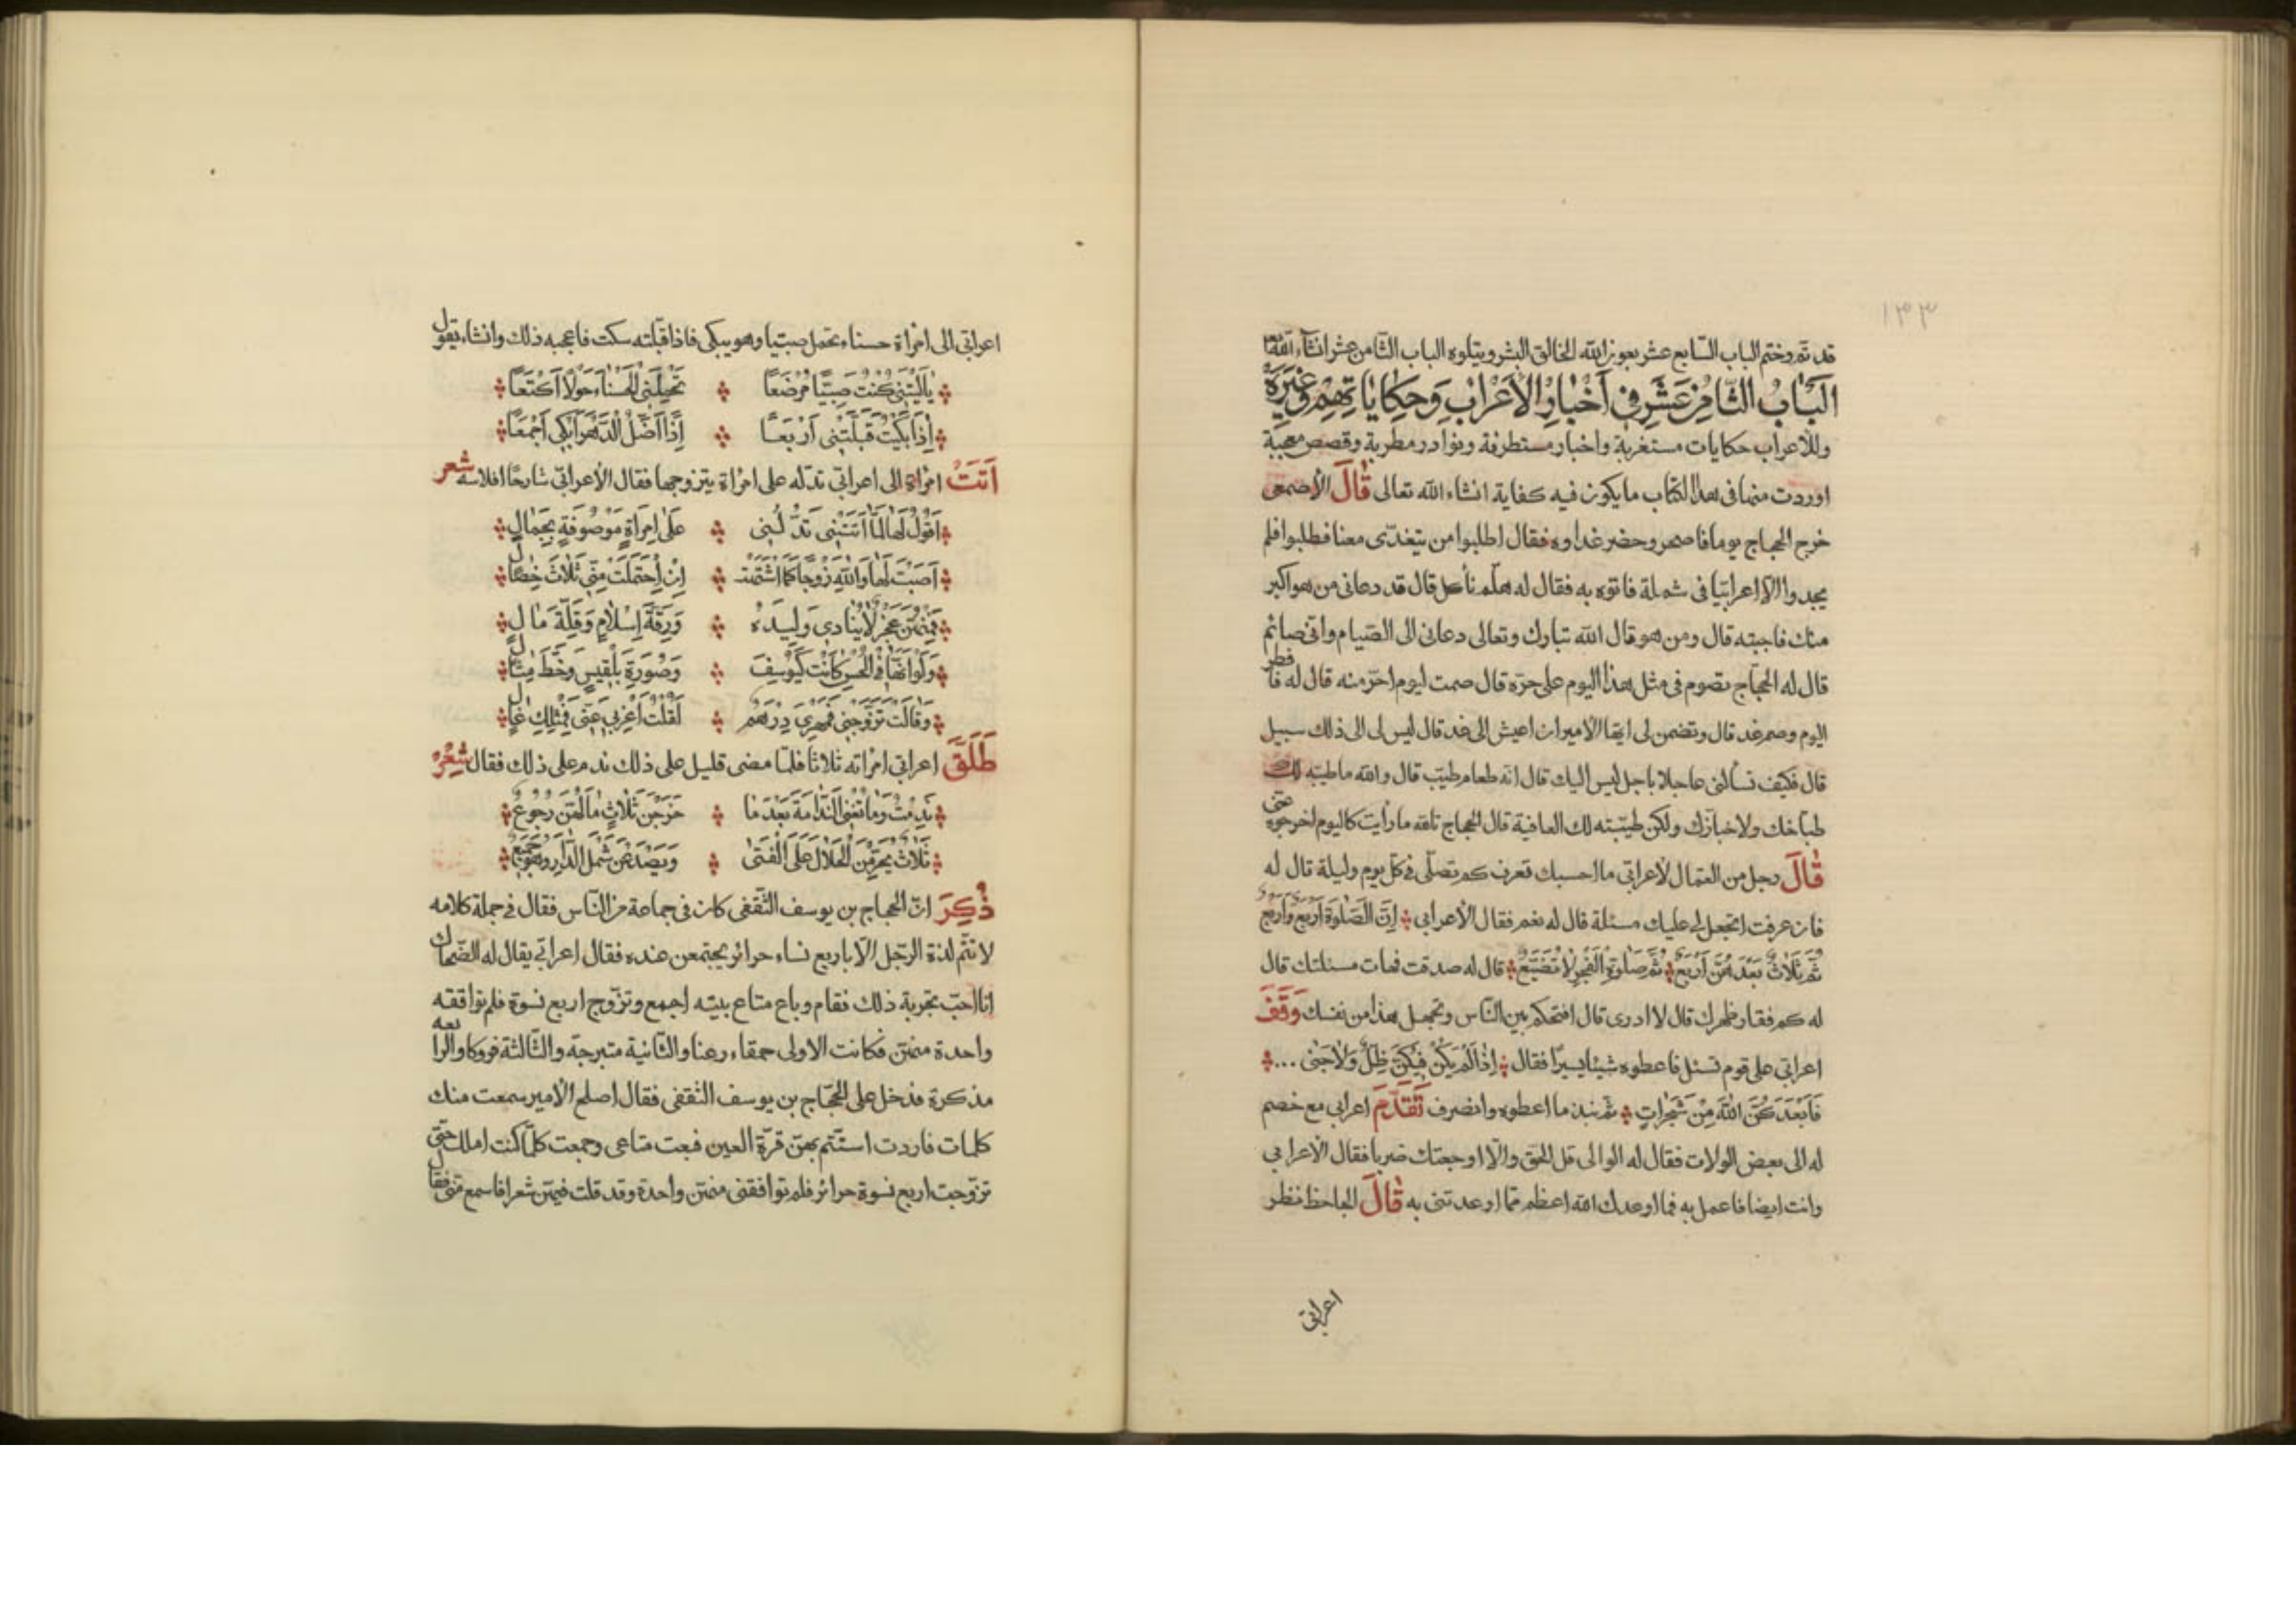 ١٣٣
قد تم وختم الباب السابع عشر بعون الله الخالق البشر ويتلوه الباب الثامن عشر انشآء الله تعالى
اَلبَابُ الثَّامِنُ عَشَرَ فِى اَخْبَارِ الْاَعْرَابِ وَحِكَايَاتِهِمْ وَغَيْرَهُ
وللاعراب حكايات مستغربة واخبار مستطرفة ونوادر مطربة وقصص معجبة
اوردت منها فى هذا الكتاب ما يكون فيه كفاية انشاء الله تعالى قَالَ الأصمعى
خرج الحجاج يوما فاصحر وحضر غداوه فقال اطلبوا من يتغدى معنا فطلبوا فلم
يجدوا الا اعرابيا فى شملة فاتوه به فقال له هلم نأكل قال قد دعانى من هو اكبر
منك فاجبته قال ومن هو قال الله تبارك وتعالى دعانى الى الصيام وانى صائم
قال له الحجاج بصوم فى مثل هذا اليوم على حره قال صمت ليوم احر منه قال له فافطر
اليوم وصم غد قال وتضمن لى ايها الامير ان اعيش الى غد قال ليس لى الى ذلك سبيل
قال فكيف تسألنى عاجلا باجل ليس اليك قال انه طعام طيب قال والله ما طيبه لك
طباخك ولا خبازك ولكن طيبته لك العافية قال الحجاج تالله ما رأيت كاليوم اخرجوه عنى
قَالَ رجل من العمال لأعرابى ما احسبك تعرف كم تصلى فى كل يوم وليلة قال له
فان عرفت اتجعل لى عليك مسئلة قال له نعم فقال الأعرابى اِنَّ الصَّلٰوةَ اَرْبَعٌ وَاَرْبَعُ
ثُمَّ ثَلَاثٌ بَعْدَهُنَّ اَرْبَعُ ثُمَّ صَلٰوةُ الْفَجْرِ لَا تُضَيَّعُ قال له صدقت فهات مسئلتك قال
له كم فقار ظهرك قال لا ادرى قال افتحكم بين الناس وتجهل هذا من نفسك وَقَفَ
اعرابى على قوم تسئل فاعطوه شيئا يسيرا فقال اِذَا لَمْ يَكُنْ فِيكُنَّ ظِلٌّ وَلَا جَنٰى ...
فَاَبْعَدَكُنَّ اللهُ مِنْ شَجَرَاتٍ ثم نبذ ما اعطوه وانصرف تَقَدَّمَ اعرابى مع خصم
له الى بعض الولات فقال له الوالى قل الحق والا اوجعتك ضربا فقال الأعرابى
وانت ايضا فاعمل به فما اوعدك الله اعظم مما اوعدتنى به قَالَ الجاحظ نظر
اعرابى
اعرابى الى امرأة حسناء تحمل صبيا وهو يبكى فاذا قبلته سكت فاعجبه ذلك وانشاء يقول
يَالَيْتَنِى كُنْتُ صَبِيًّا مُرْضَعًا تَحْمِلَنِى الْحَسْنَآءُ حَوْلًا اَكْتَعًا
اِذَا بَكَيْتُ قَبَّلَتْنِى اَرْبَعًا اِذًا اَضَلُّ الدَّهْرَ اَبْكِى اَجْمَعًا
اَتَتْ امرأة الى اعرابى تدله على امرأة يتزوجها فقال الأعرابى شارحا افلاسه شعر
اَقُولُ لَهَا لَمَّا اَتَتْنِى تَدُلُّنِى عَلٰى اِمْرَاَةٍ مَوْصُوفَةٍ بِجَمَالٍ
اَصَبْتَ لَهَا وَاللهِ زَوْجًا كَمَا اشْتَهَتْ اِنْ اِحْتَمَلَتْ مِنِّى ثَلَاثَ خِصَالٍ
فَمِنْهُنَّ عَجْزٌ لَا يُنَادِى وَلِيدَهُ وَرِقَّةُ اِسْلَامٍ وَقِلَّةُ مَالٍ
وَلَوْ اَنَّهَا فِى الْحُسْنِ كَانَتْ كَيُوسِفَ وَصُورَةِ بَلْقِيسٍ وَخَطِّ مِثَالٍ
وَقَالَتْ تَزَوَّجْنِى فَمَهْرِى دِرْهَمٌ لَقُلْتُ اغْرُبِى عَنِّى فَمِثْلِكِ غَالٍ
طَلَّقَ اعرابى امرأته ثلاثا فلما مضى قليل على ذلك ندم على ذلك فقال شِعْرٌ
نَدِمْتُ وَمَا تُغْنِى النَّدَامَةُ بَعْدَمَا خَرَجْنَ ثَلَاثٍ مَا لَهُنَّ رُجُوعُ
ثَلَاثٌ يُحَرِّمْنَ الْحَلَالَ عَلَى الْفَتٰى وَيَصْدَعْنَ شَمْلَ الدَّارِ وَهُوَ جَمِيعُ
ذُكِرَ ان الحجاج بن يوسف الثقفى كان فى جماعة من الناس فقال فى جملة كلامه
لا تتم لذة الرجل الا باربع نساء حرائر يجتمعن عنده فقال اعرابى يقال له الضحاك
انا احب تجربة ذلك فقام وباع متاع بيته اجمع وتزوج اربع نسوة فلم توافقه
واحدة منهن فكانت الاولى حمقاء رعنا والثانية متبرجة والثالثة فروكا والرابعة
مذكرة فدخل على الحجاج بن يوسف الثقفى فقال اصلح الامير سمعت منك
كلمات فاردت استتم بهن قرة العين فبعت متاعى وجمعت كلما كنت املك حتى
تزوجت اربع نسوة حرائر فلم توافقنى منهن واحدة وقد قلت فيهن شعرا فاسمع منى فقال